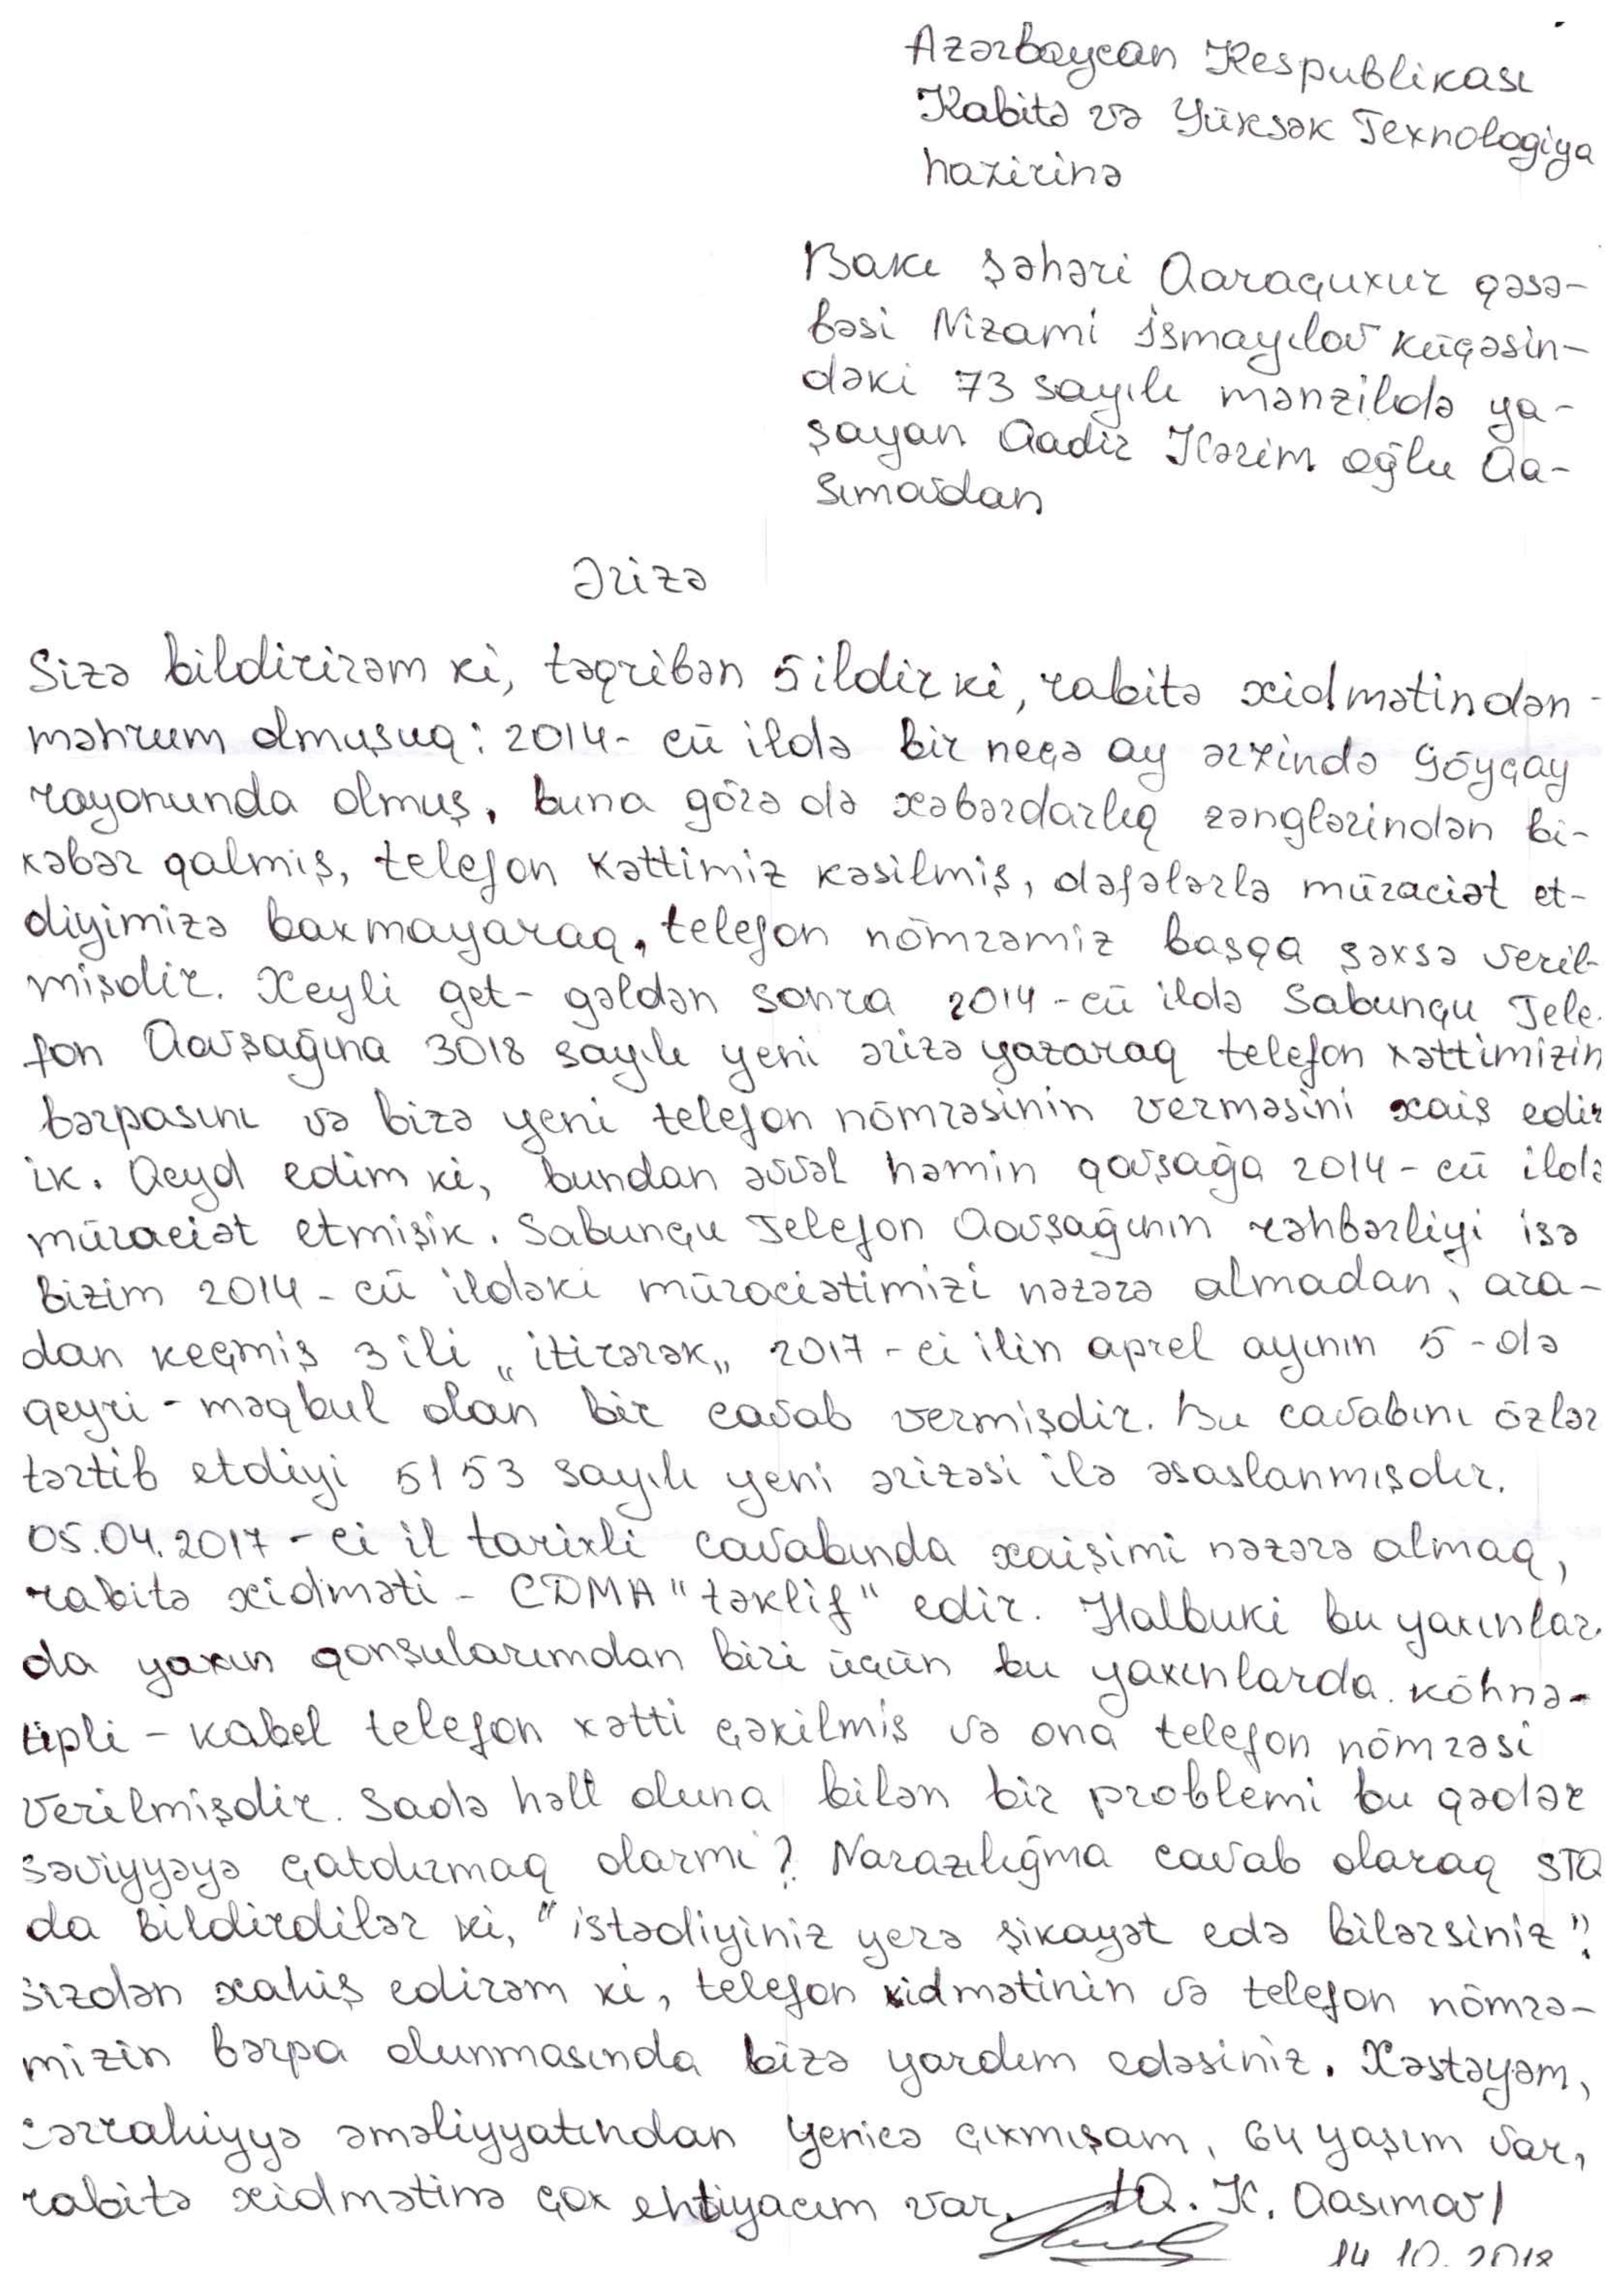 Azərbaycan Respublikası
Rabitə və Yüksək Texnologiya
nazirinə
Bakı şəhəri Qaraçuxur qəsə-
bəsi Nizami İsmayılov küçəsin-
dəki 73 sayılı mənzildə ya-
şayan Qadir Kərim oğlu Qa-
sımovdan
Ərizə
Sizə bildirirəm ki, təqribən 5 ildir ki, rabitə xidmətindən
məhrum olmuşuq: 2014-cü ildə bir neçə ay ərzində Göyçay
rayonunda olmuş, buna görə də xəbərdarlıq zənglərindən bi-
xəbər qalmış, telefon xəttimiz kəsilmiş, dəfələrlə müraciət et-
diyimizə baxmayaraq, telefon nömrəmiz başqa şəxsə veril-
mişdir. Xeyli get-gəldən sonra 2014-cü ildə Sabunçu Tele-
fon Qovşağına 3018 sayılı yeni ərizə yazaraq telefon xəttimizin
bərpasını və bizə yeni telefon nömrəsinin verməsini xaiş edir
ik. Qeyd edim ki, bundan əvvəl həmin qovşağa 2014-cü ildə
müraciət etmişik. Sabunçu Telefon Qovşağının rəhbərliyi isə
bizim 2014-cü ildəki müraciətimizi nəzərə almadan, ara-
dan keçmiş 3 ili „itirərək„ 2017-ci ilin aprel ayının 5-də
qeyri-məqbul olan bir cavab vermişdir. Bu cavabını özlər
tərtib etdiyi 5153 sayılı yeni ərizəsi ilə əsaslanmışdır.
05.04.2017-ci il tarixli cavabında xaişimi nəzərə almaq,
rabitə xidməti - CDMA "təklif" edir. Halbuki bu yaxınlar
da yaxın qonşularımdan biri üçün bu yaxınlarda köhnə-
tipli - kabel telefon xətti çəkilmiş və ona telefon nömrəsi
verilmişdir. Sadə həll oluna bilən bir problemi bu qədər
səviyyəyə çatdırmaq olarmı? Narazılığma cavab olaraq STQ
da bildirdilər ki, "istədiyiniz yerə şikayət edə bilərsiniz".
Sizdən xahiş edirəm ki, telefon xidmətinin və telefon nömrə-
mizin bərpa olunmasında bizə yardım edəsiniz. Xəstəyəm,
cərrahiyyə əməliyyatından yenicə çıxmışam, 64 yaşım var,
rabitə xidmətinə çox ehtiyacım var. /Q. K. Qasımov/
14.10.2018